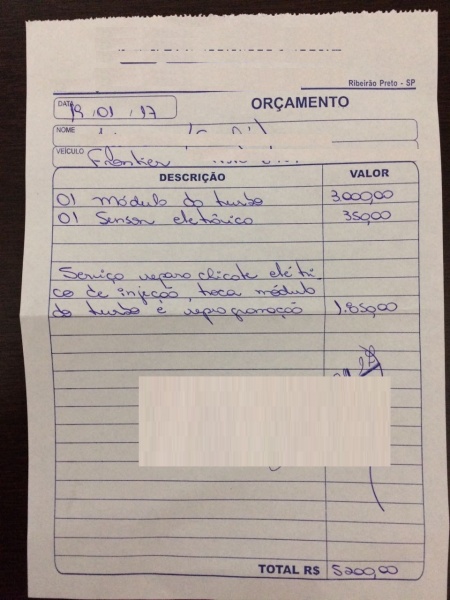 Ribeirão Preto - SP
DATA 19/01/17 ORÇAMENTO
NOME
VEÍCULO Frontier
DESCRIÇÃO VALOR
01 módulo do turbo 3.000,00
01 Sensor eletrônico 350,00
Serviço reparo chicote elétri-
co de injeção, troca módulo
do turbo e reprogramação 1.850,00
TOTAL R$ 5200,00